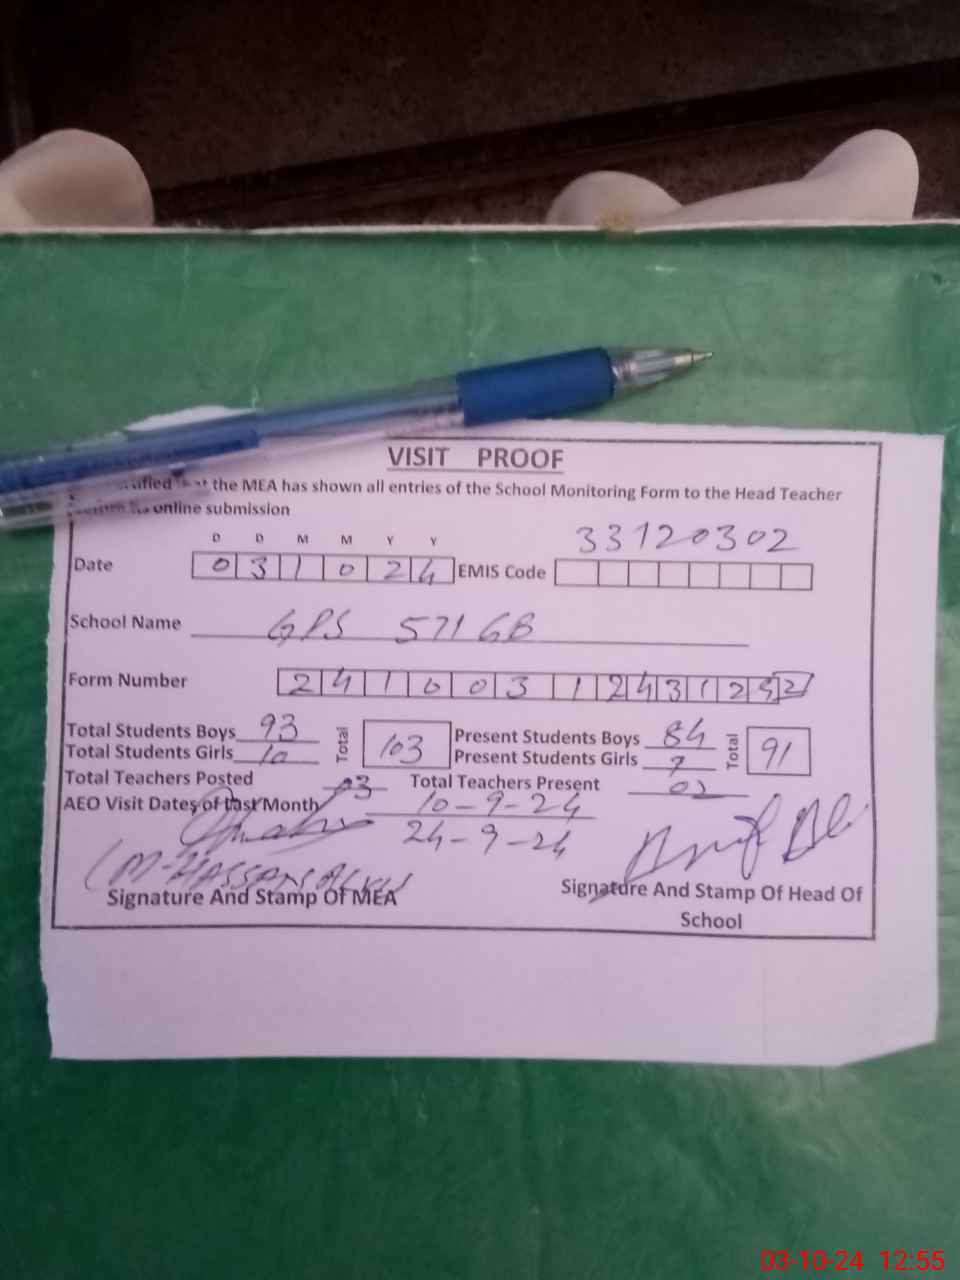 VISIT PROOF
that the MEA has shown all entries of the School Monitoring Form to the Head Teacher
online submission
D D M M Y Y
33120302
Date 031024 EMIS Code
School Name GPS 571 GB
Form Number 241003124312
Total Students Boys 93 Total 103 Present Students Boys 84 Total 91
Total Students Girls 10 Present Students Girls 7
Total Teachers Posted 03 Total Teachers Present 02
AEO Visit Dates of Last Month 10-9-24
24-9-24
(M-HASSAN
Signature And Stamp Of MEA Signature And Stamp Of Head Of
School
03-10-24 12:55